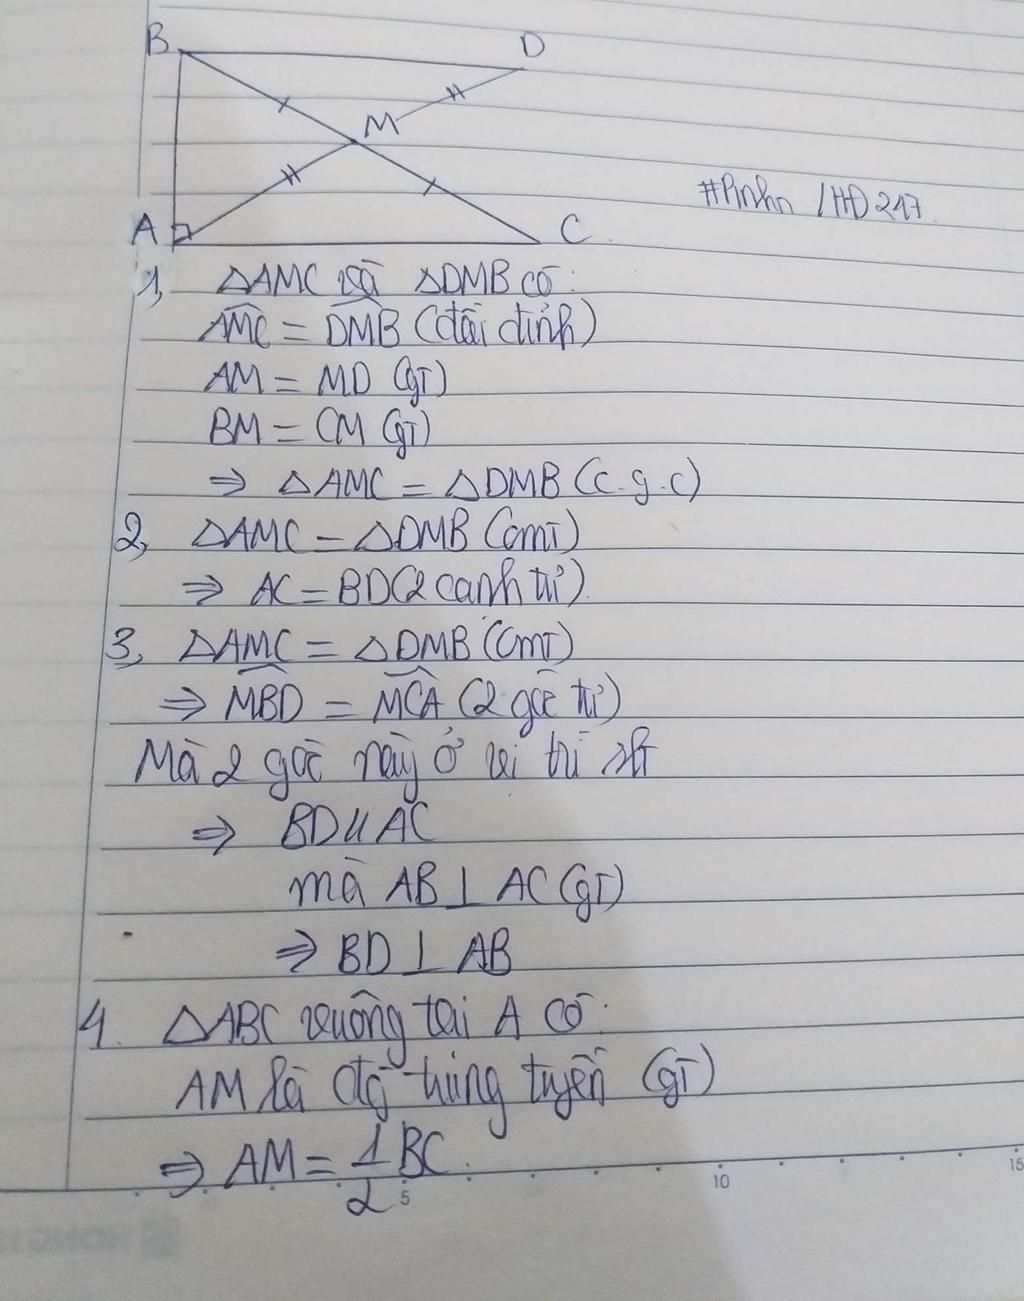 B
D
M
#Pinhn /HĐ247
A
C
1, △AMC và △DMB có:
AMC = DMB (đối đỉnh)
AM = MD (gt)
BM = CM (gt)
⇒ △AMC = △DMB (c.g.c)
2, △AMC = △DMB (cmt)
⇒ AC = BD (2 cạnh tư)
3, △AMC = △DMB (cmt)
⇒ MBD = MCA (2 góc tư)
Mà 2 góc này ở vị trí slt
⇒ BD // AC
mà AB ⊥ AC (gt)
⇒ BD ⊥ AB
4. △ABC vuông tại A có:
AM là đg trung tuyến (gt)
⇒ AM = 1/2 BC.
5 10 15